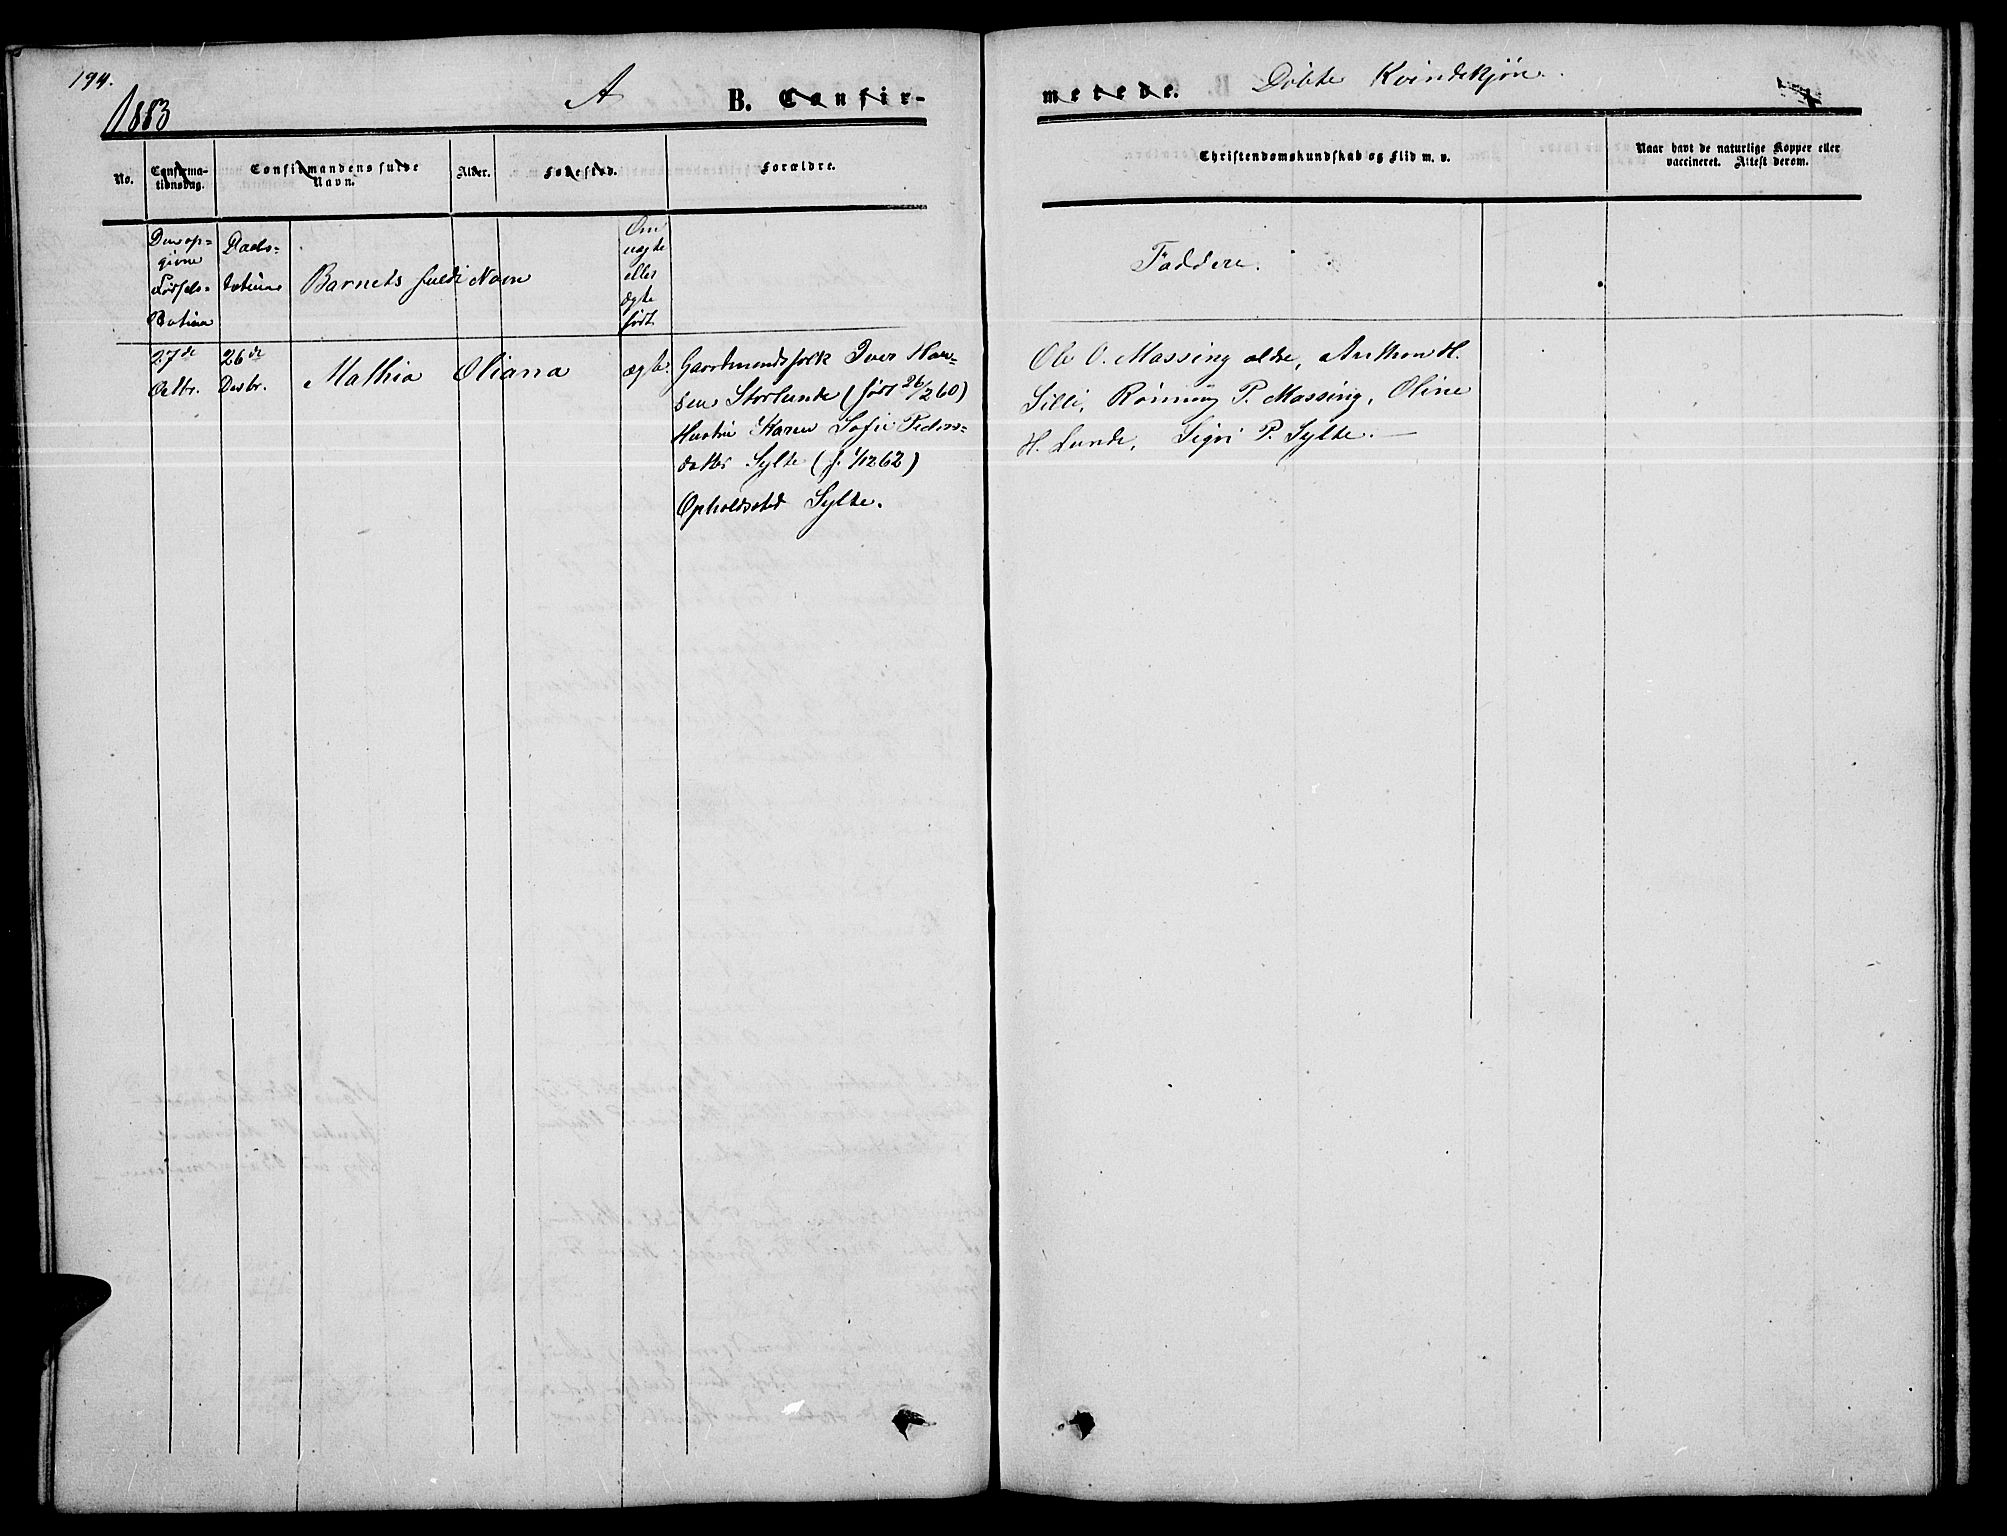 194.
1883
A
B. Confir-
No.
Confirma-
tionsdag.
Confirmandens fulde
Navn.
Alder.
Fødested.
Forældre.
Den op-
givne
Fødsels-
Datum
Daabs-
datum
Barnets fulde Navn
Om
uægte
eller
ægte
født
27de
Octbr.
26de
Decbr.
Mathia Oliana
ægte.
Gaardmandsfolk Iver Han-
sen Storlunde (født 26/2 60)
Hustru Karen Sofie Peders-
datter Sylte (f. 1/12 62)
Opholdssted Sylte.
merede.
Døbte Kvindekjøn.
Christendomskundskab og Flid m. v.
Naar havt de naturlige Kopper eller
vaccineret. Attest derom.
Faddere.
Ole O. Massing ældre, Anthon H.
Silli, Rønnug P. Massing, Oline
H. Lunde, Sigri P. Sylte.—